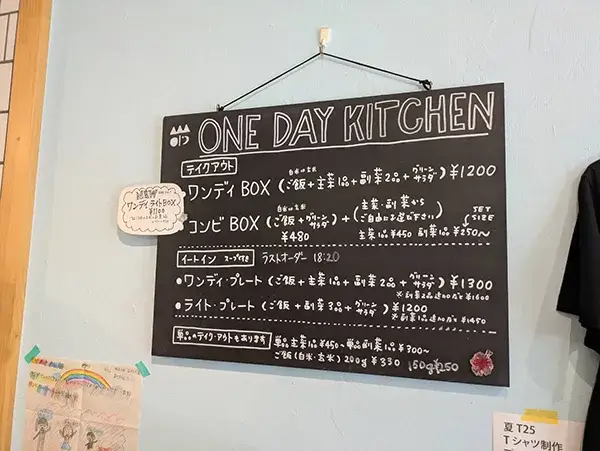 ONE DAY KITCHEN
テイクアウト
ワンディ BOX (ご飯 + 主菜1品 + 副菜2品 + グリーンサラダ) ¥1200
白米 or 玄米
コンビ BOX (ご飯 + グリーンサラダ) + (主菜・副菜からご自由にお選び下さい)
白米 or 玄米
¥480
主菜1品 ¥450 副菜1品 ¥250〜
SET SIZE
ワンディ ライトBOX
¥1100
イートイン スープ付き ラストオーダー 18:20
・ワンディ・プレート (ご飯 + 主菜1品 + 副菜2品 + グリーンサラダ) ¥1300
※副菜2品追加だと ¥1600
・ライト・プレート (ご飯 + 副菜3品 + グリーンサラダ) ¥1200
※副菜1品追加だと ¥1450
単品のテイクアウトもあります
単品主菜1品 ¥450〜 単品副菜1品 ¥300〜
ご飯(白米・玄米) 200g ¥330 150g ¥250
夏T25
Tシャツ制作